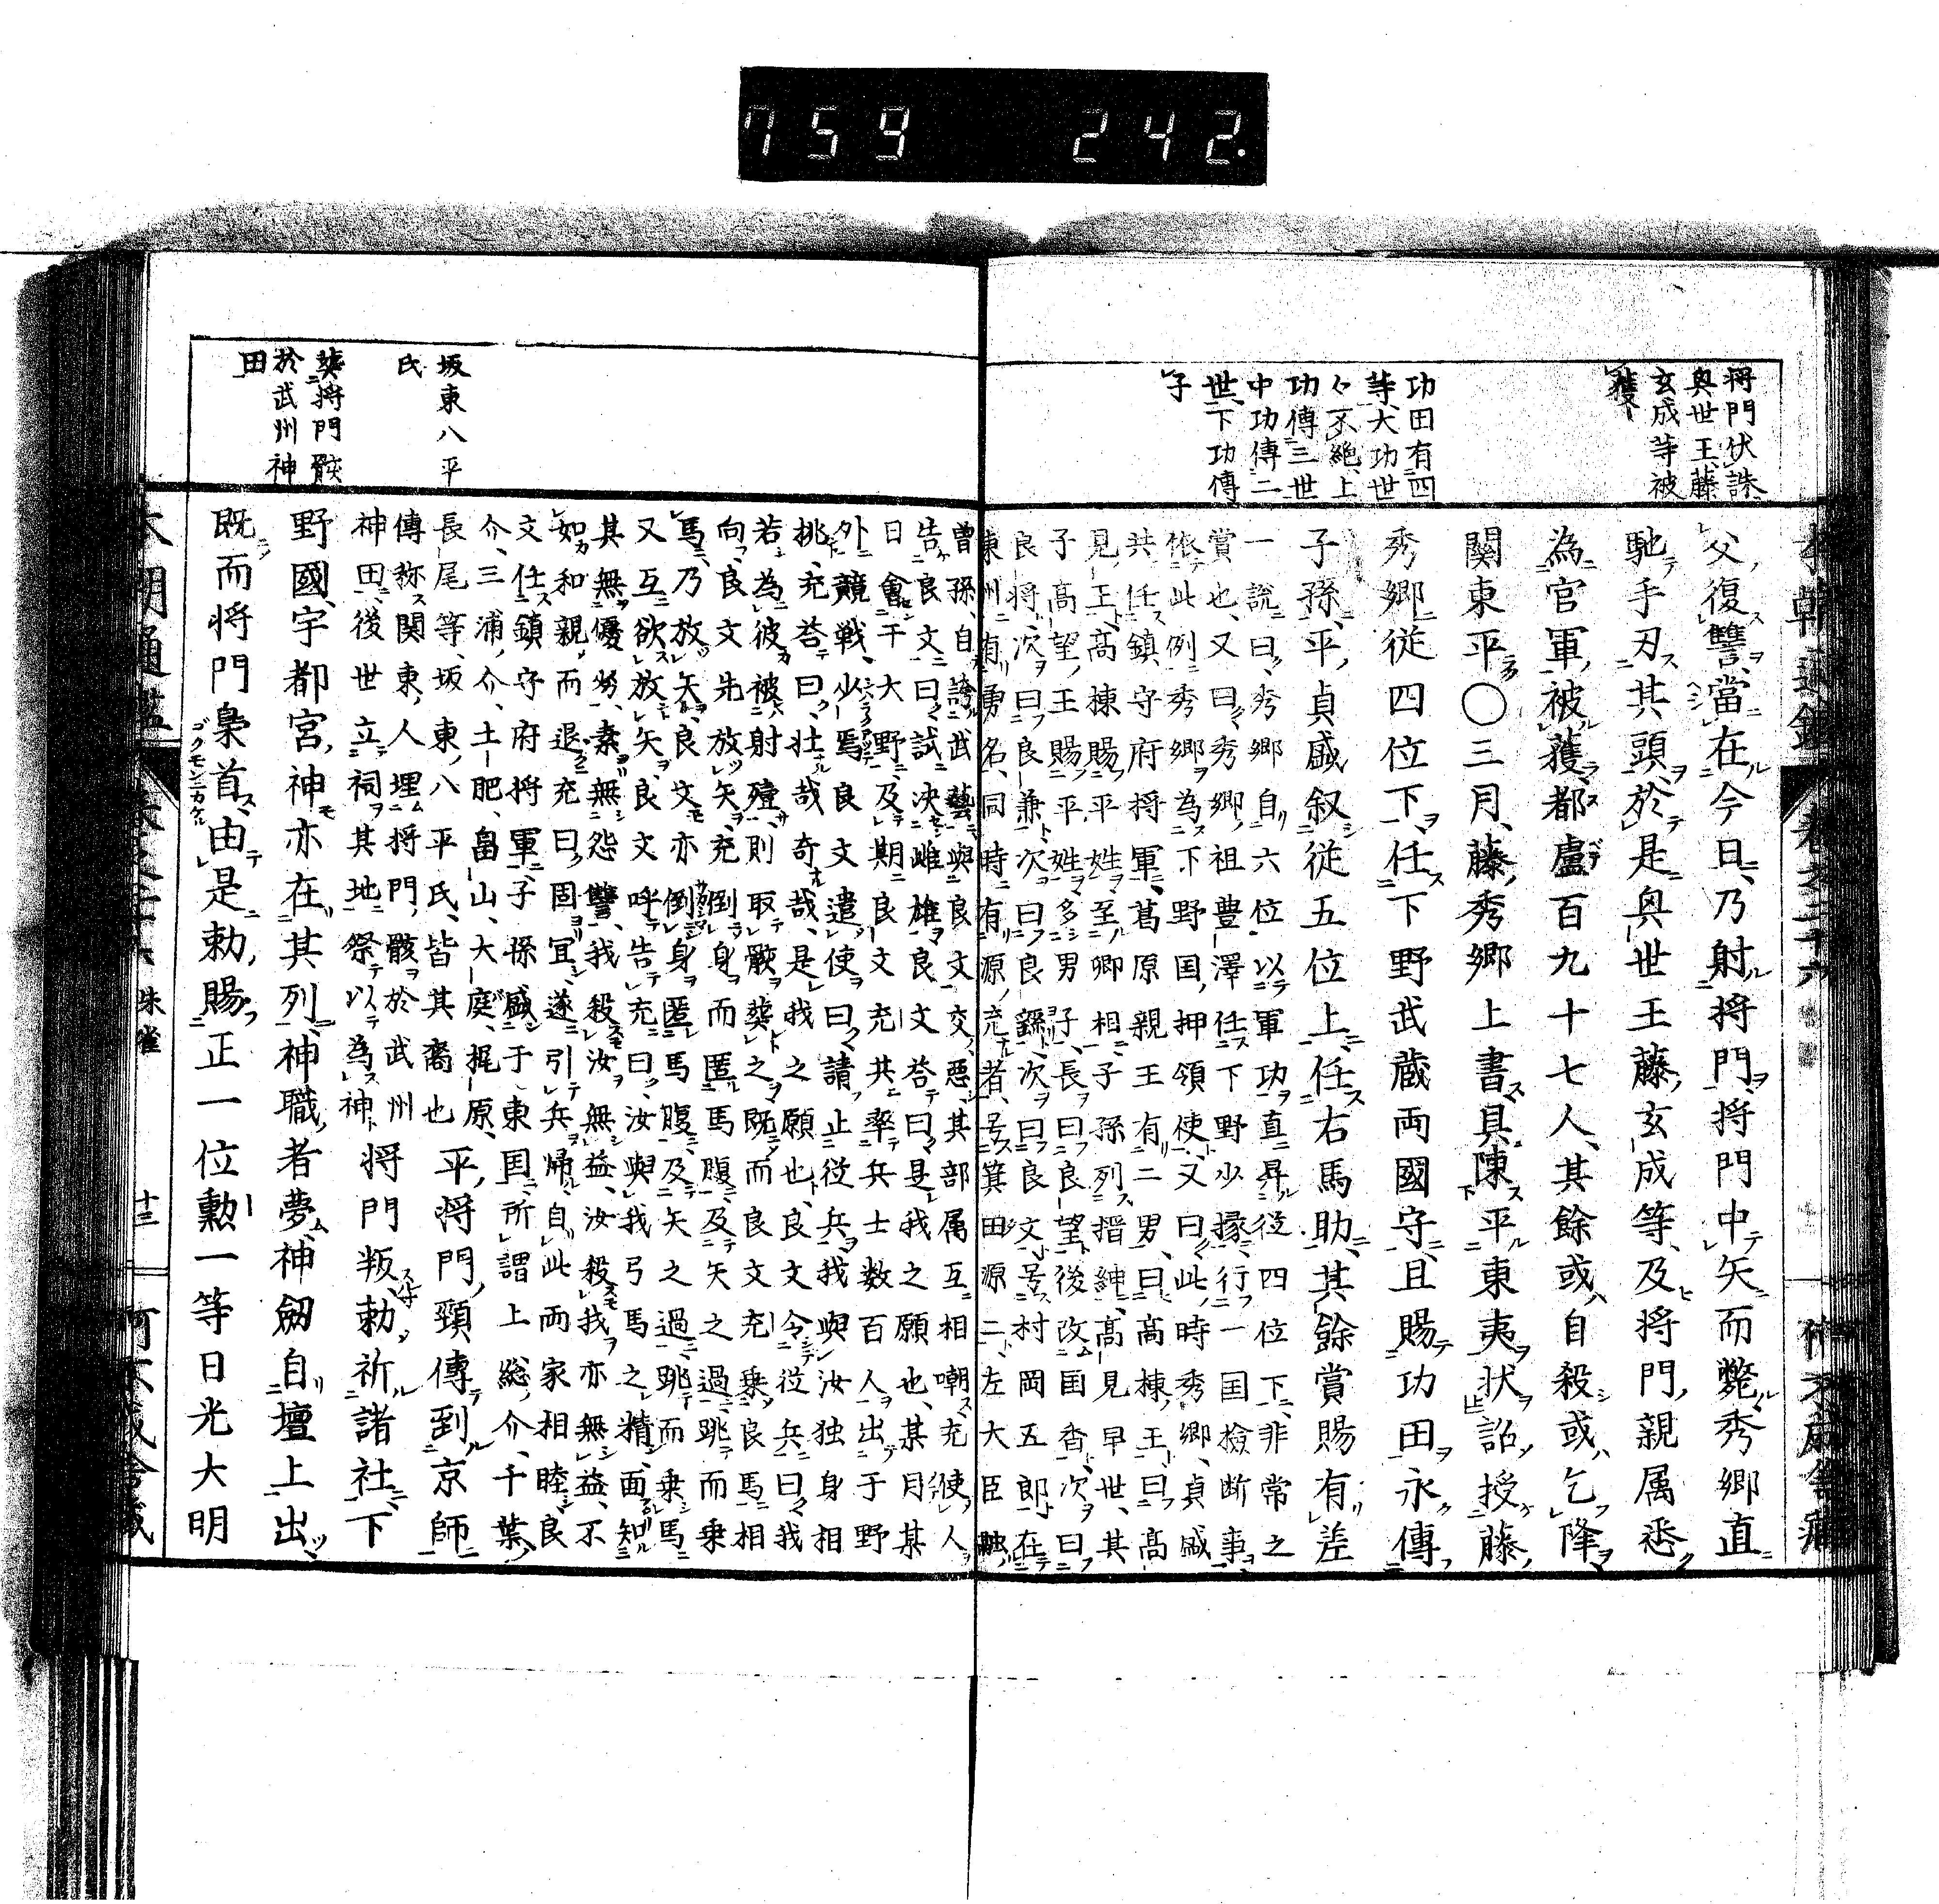 759 242.
将門伏誅
與世王藤
玄成等被
獲
功田有四
等大功世
々不絶上
功傳三世
中功傳二
世下功傳
子
父復讐當在今日乃射将門将門中矢而斃秀郷直
馳手刃其頭於是與世王藤玄成等及将門親属悉
為官軍被獲都盧百九十七人其餘或自殺或乞降
關東平〇三月藤秀郷上書具陳平東夷状詔授藤
秀郷従四位下任下野武蔵両國守且賜功田永傳
子孫平貞盛叙従五位上任右馬助其餘賞賜有差
一説曰秀郷自六位以軍功直昇従四位下非常之
賞也又曰秀郷祖豊澤任下野少掾行一国檢断事
依此例秀郷為下野国押領使又曰此時秀郷貞盛
共任鎮守府将軍葛原親王有二男曰高棟王曰高
見王高棟賜平姓至卿相子孫列搢紳高見早世其
子高望王賜平姓多男子長曰良望後改国香次曰
良将次曰良兼次曰良繇次曰良文号村岡五郎在
東州有勇名同時有源充者号箕田源二左大臣融
曽孫自誇武藝與良文交悪其部属互相嘲充使人
告良文曰試决雌雄良文答曰是我之願也某月某
日會干大野及期良文充共率兵士数百人出于野
外競戦少焉良文遣使曰請止従兵我與汝独身相
挑充答曰壮哉奇哉是我之願也良文令従兵曰我
若為彼被射殪則取骸葬之既而良文充乗良馬相
向良文先放矢充倒身而匿馬腹及矢之過跳而乗
馬乃放矢良文亦倒身匿馬腹及矢之過跳而乗馬
又互欲放矢良文呼告充曰汝與我弓馬之精面知
其無優劣素無怨讐我殺汝無益汝殺我亦無益不
如和親而退充曰固宜遂引兵帰自此両家相睦良
文任鎮守府将軍子孫盛于東国所謂上総介千葉
介三浦介土肥畠山大庭梶原
長尾等坂東八平氏皆其裔也平将門頸傳到京師
傳称関東人埋将門骸於武州
神田後世立祠其地祭以為神将門叛勅祈諸社下
野國宇都宮神亦在其列神職者夢神劔自壇上出
既而将門梟首由是勅賜正一位勲一等日光大明
坂東八平
氏
葬将門骸
於武州神
田
朱雀
十三